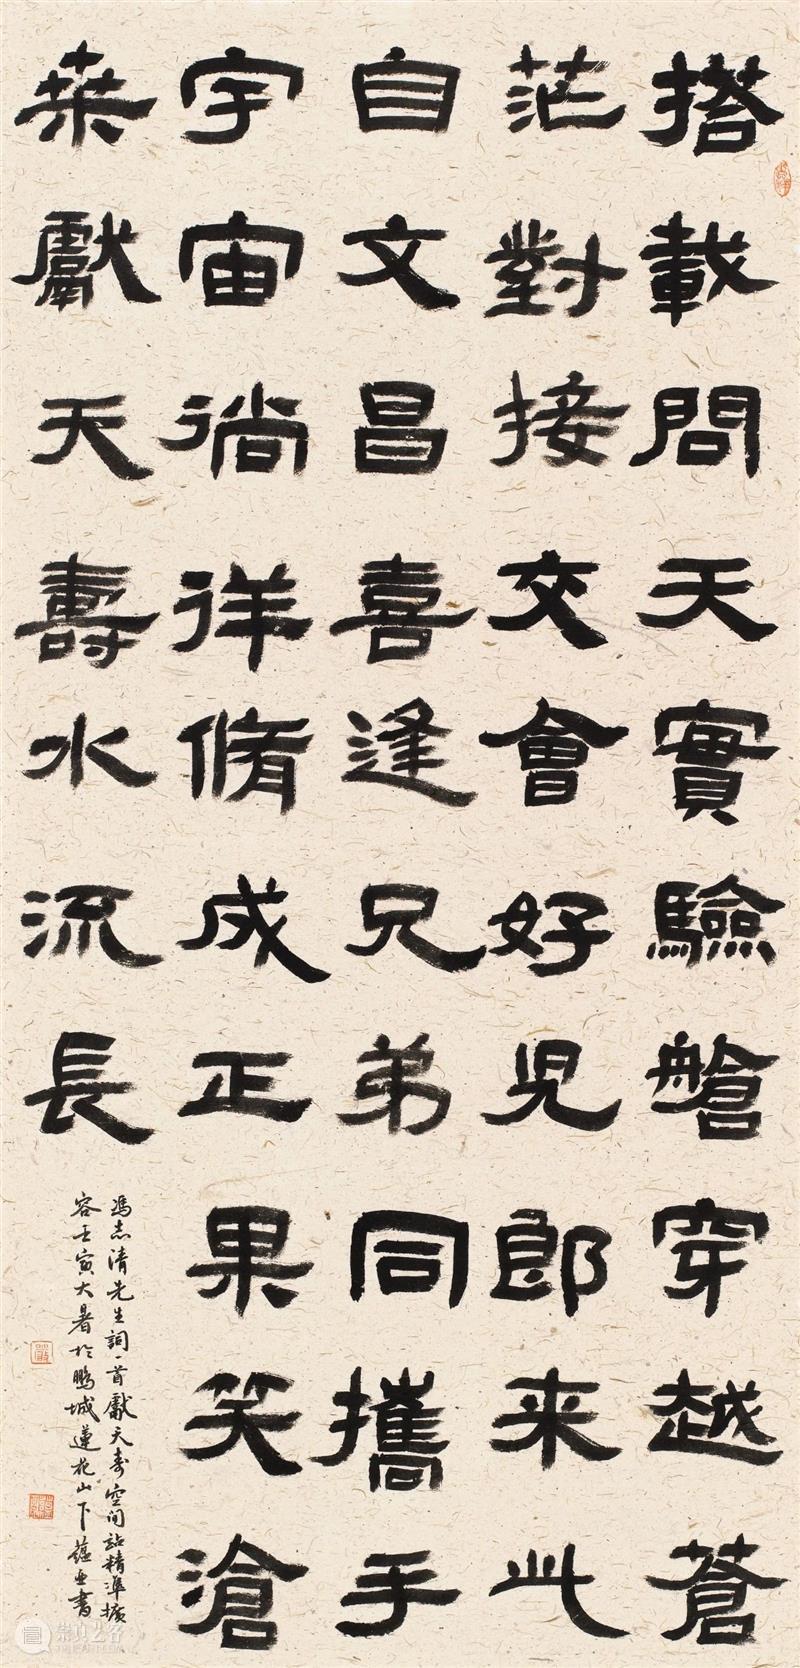 搭載問天實驗艙穿越蒼
茫對接交會好児郎来此
自文昌喜逢兄弟同攜手
宇宙徜徉脩成正果笑滄
桒獻天壽水流長
馮志清先生詞一首獻天壽空间站精準擴
容壬寅大暑於鵬城蓮花山下蘊生書
崇真艺客